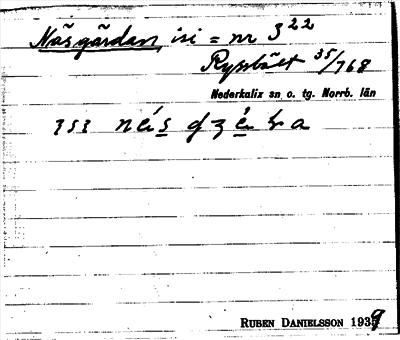 Näsgårdan, isi = nr 3²²
Rysbält 35/768
Nederkalix sn o. tg. Norrb. län
RUBEN DANIELSSON 1939